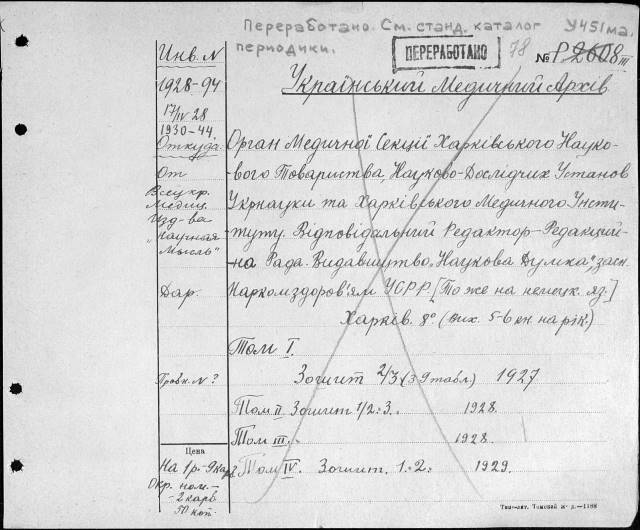 Переработано. См. станд. каталог У451ма.
периодики.
ПЕРЕРАБОТАНО 78 № Р.2608 III
Инв. N
1928-94
17/IV 28
1930-44.
Откуда:
От
Всеукр.
Медиц.
Изд-ва
"Научная
Мысль"
Дар.
Пробн. N?
Цена
На 1 р.-9 карб
Окр. ном.-
-2 карб
50 коп.
Український Медичний Архів
Орган Медичної Секції Харківського Науко-
вого Товариства, Науково-Дослідчих Установ
Укрнауки та Харківського Медичного Інсти-
туту. Відповідальний Редактор-Редакцій-
на Рада. Видавництво "Наукова Думка", засн.
Наркомздоров'ям УСРР. [То же на немецк. яз.]
Харків. 8° (Вих. 5-6 кн. на рік.)
Том I.
Зошит 2/3 (з 9 табл) 1927
Том II Зошит 1/2.-3. 1928.
Том III. 1928.
Том IV. Зошит. 1.-2. 1929.
Тип-лит. Томской ж. д.—1168